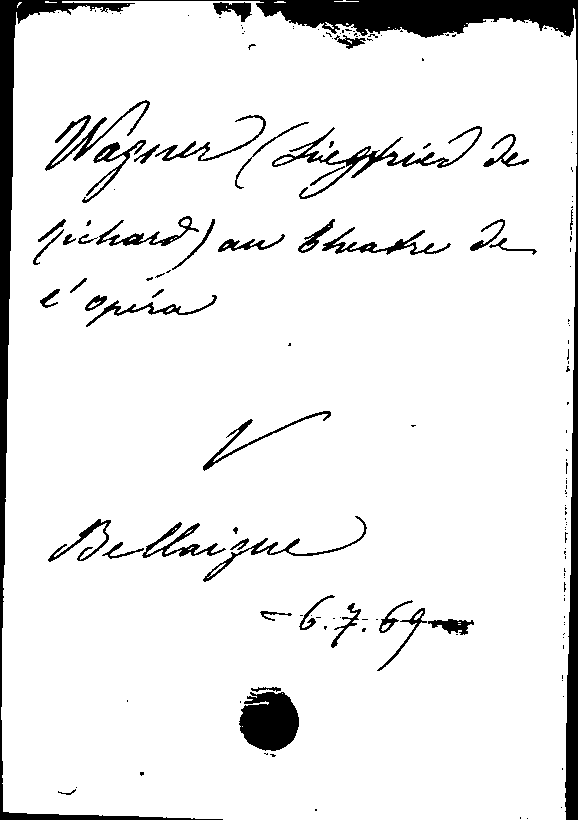 Wagner (Siegfried de
Richard) au theatre de
l'opéra
V
Bellaigue
6.7.69